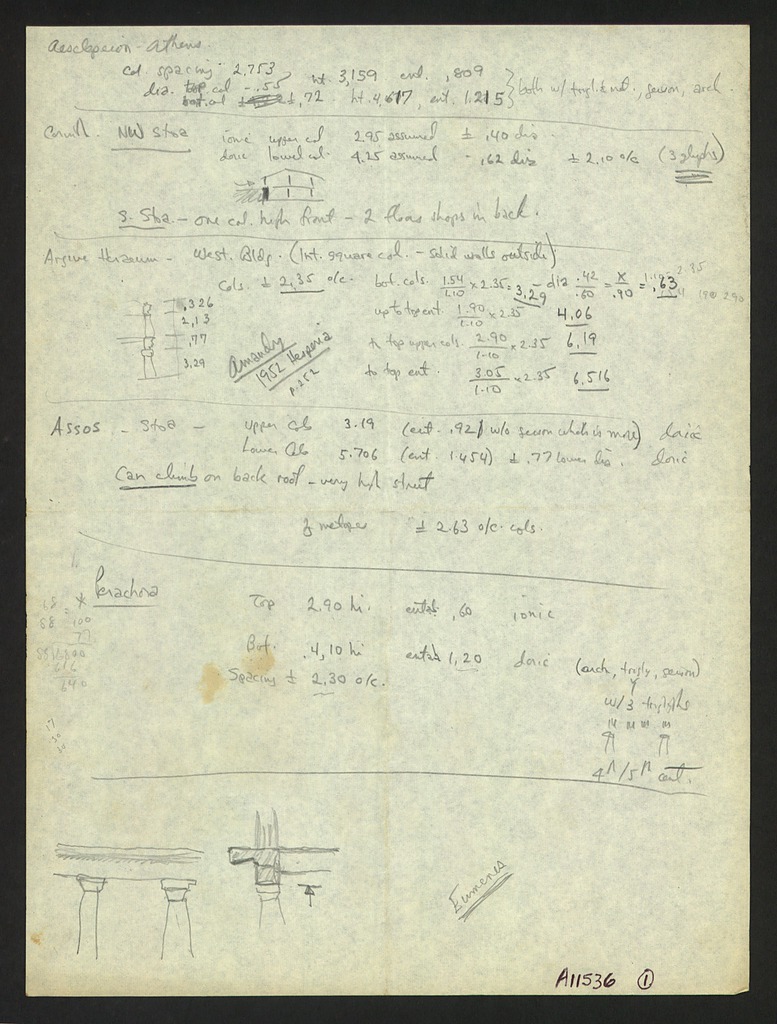 Aesclepeion - Athens.
Col. spacing 2,753
dia. top col - .55 ht. 3,159 ent. ,809
bott. col ± ,72. ht. 4,617, ent. 1.215 } both w/ trigl. & met., geison, arch.
Corinth. NW Stoa ionic upper col 2.95 assumed ± ,40 dia.
doric lower col. 4.25 assumed - ,62 dia ± 2.10 o/c (3 glyphs)
S. Stoa - one col. high front - 2 floors shops in back.
Argive Heraeum - West. Bldg. (Int. square col. - solid walls outside)
Cols. ± 2,35 o/c. bot. cols. 1.54/1.10 x 2.35 = 3,29 - dia .42/.60 = x/.90 = ,63
,326
2,13
,77
3,29
up to top ent. 1.90/1.10 x 2.35 4,06
to top upper cols. 2.90/1.10 x 2.35 6,19
to top ent. 3.05/1.10 x 2.35 6,516
Amandry
1952 Hesperia
p. 252
Assos - Stoa - upper cols 3.19 (ent. .921 w/o geison which is more) doric
Lower Cols 5.706 (ent. 1.454) ± .77 lower dia. doric
Can climb on back roof - very high street
metopes ± 2.63 o/c. cols.
Perachora
Top 2.90 hi. entab ,60 ionic
Bot. 4,10 hi entab 1,20 doric
Spacing ± 2,30 o/c. (arch, trigly, geison)
w/3 triglyphs
ent.
Eumenes
A11536 1